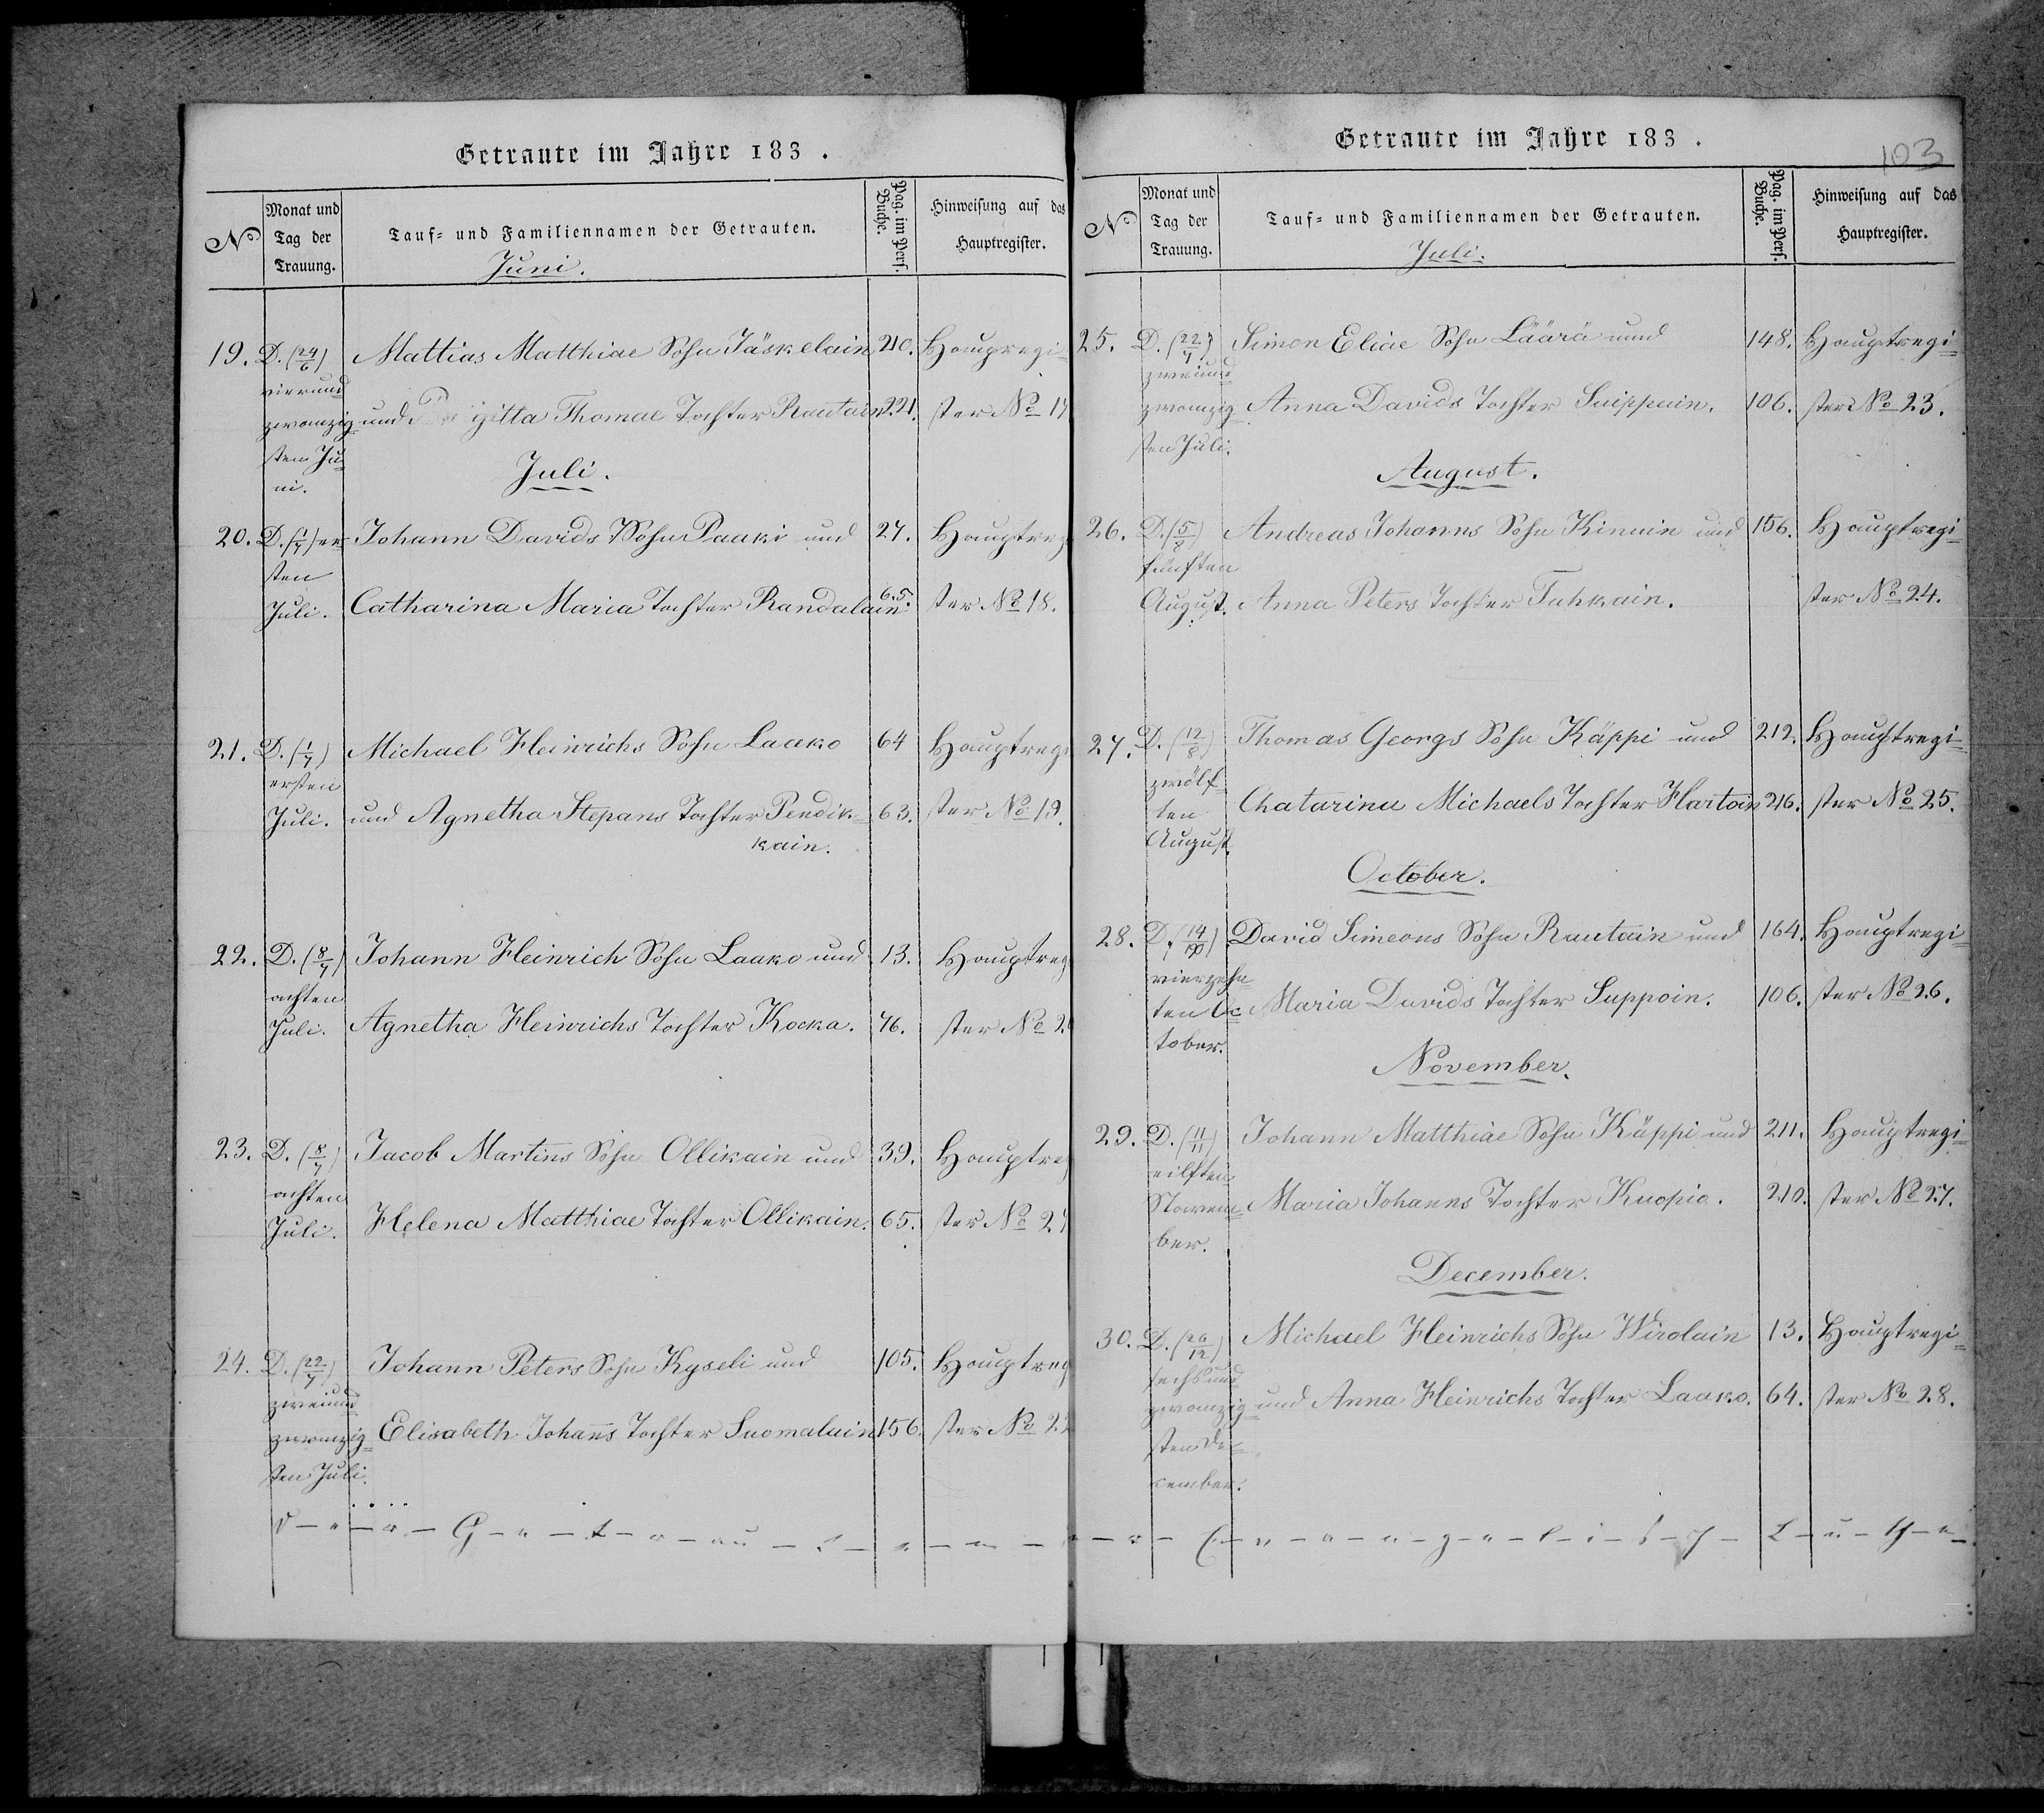 Getraute im Jahre 183 .
No
Monat und
Tag der
Trauung.
Tauf- und Familiennamen der Getrauten.
Pag. im Pers.
Buche.
Hinweisung auf das
Hauptregister.
Juni.
19. D. (24/6) Mattias Matthiae Sohn Jäskelain 210. Haupregi
vierund
zwanzig- und gitta Thomae Tochter Rautain 221. ster No 17
sten Ju-
ni.
Juli.
20. D. (1/7) er- Johann Davids Sohn Paaki und 27. Hauptreg
sten
Juli. Catharina Maria Tochter Randalain 65. ster No 18.
21. D. (1/7) Michael Heinrichs Sohn Laako 64 Hauptregi
ersten
Juli. und Agnetha Stepans Tochter Pendik- 63. ster No 19.
kain.
22. D. (8/7) Johann Heinrich Sohn Laako und 13. Hauptreg
achten
Juli. Agnetha Heinrichs Tochter Kocka. 76. ster No 2
23. D. (8/7) Jacob Martins Sohn Ollikain und 39. Hauptreg
achten
Juli. Helena Matthiae Tochter Ollikain. 65. ster No 2
24. D. (22/7) Johann Peters Sohn Kyseli und 105. Hauptreg
zweiund
zwanzig- Elisabeth Johanns Tochter Suomalain 156. ster No 22
sten Juli.
d-e-r- G-e-t-r-au-t-e-n-
Getraute im Jahre 183 .
103
No
Monat und
Tag der
Trauung.
Tauf- und Familiennamen der Getrauten.
Pag. im Pers.
Buche.
Hinweisung auf das
Hauptregister.
Juli.
25. D. (22/7) Simon Eliae Sohn Läärä und 148. Hauptregi-
zweiund
zwanzig- Anna Davids Tochter Suippain. 106. ster No 23.
sten Juli.
August.
26. D. (5/8) Andreas Johanns Sohn Kinnin und 156. Hauptregi-
fünften
August. Anna Peters Tochter Tuhkain. ster No 24.
27. D. (12/8) Thomas Georgs Sohn Käppi und 212. Hauptregi-
zwölf-
ten Chatarina Michaels Tochter Hartoin 216. ster No 25.
August.
October.
28. D. (14/10) David Simeons Sohn Rautain und 164. Hauptregi-
vierzehn-
ten Oc- Maria Davids Tochter Suppoin. 106. ster No 26.
tober.
November.
29. D. (11/11) Johann Matthiae Sohn Käppi und 211. Hauptregi-
eilften
Novem- Maria Johanns Tochter Kuopio. 210. ster No 27.
ber.
December.
30. D. (26/12) Michael Heinrichs Sohn Wirolain 13. Hauptregi-
sechsund
zwanzig- und Anna Heinrichs Tochter Laako. 64. ster No 28.
sten De-
cember.
-r- E-v-a-n-g-e-l-i-s-ch- L-u-th-e-